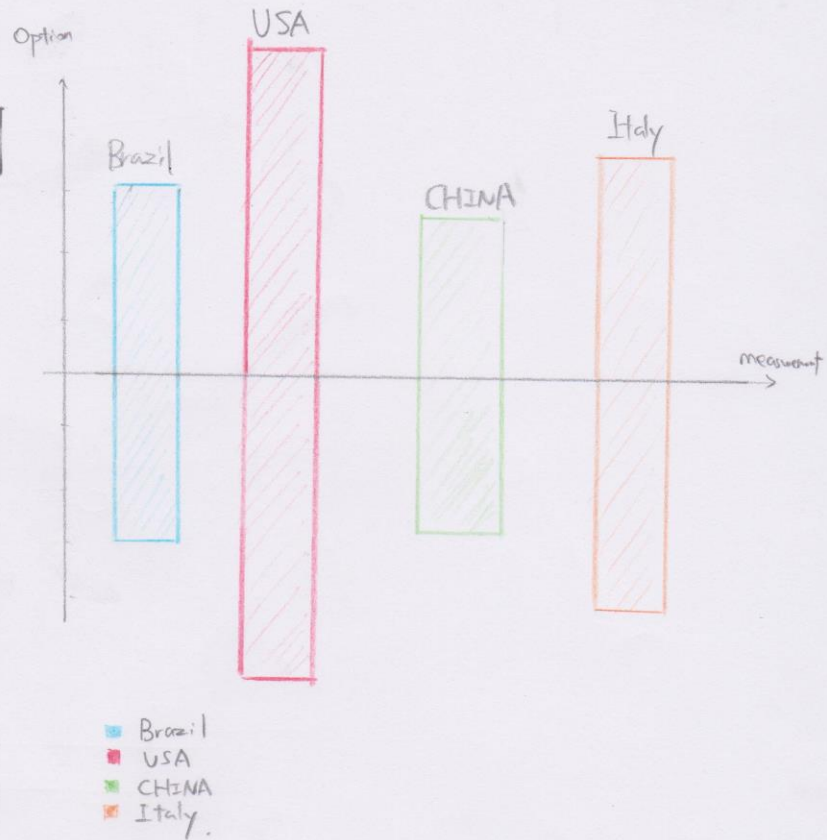 Option
USA
Brazil
CHINA
Italy
Brazil
USA
CHINA
Italy.